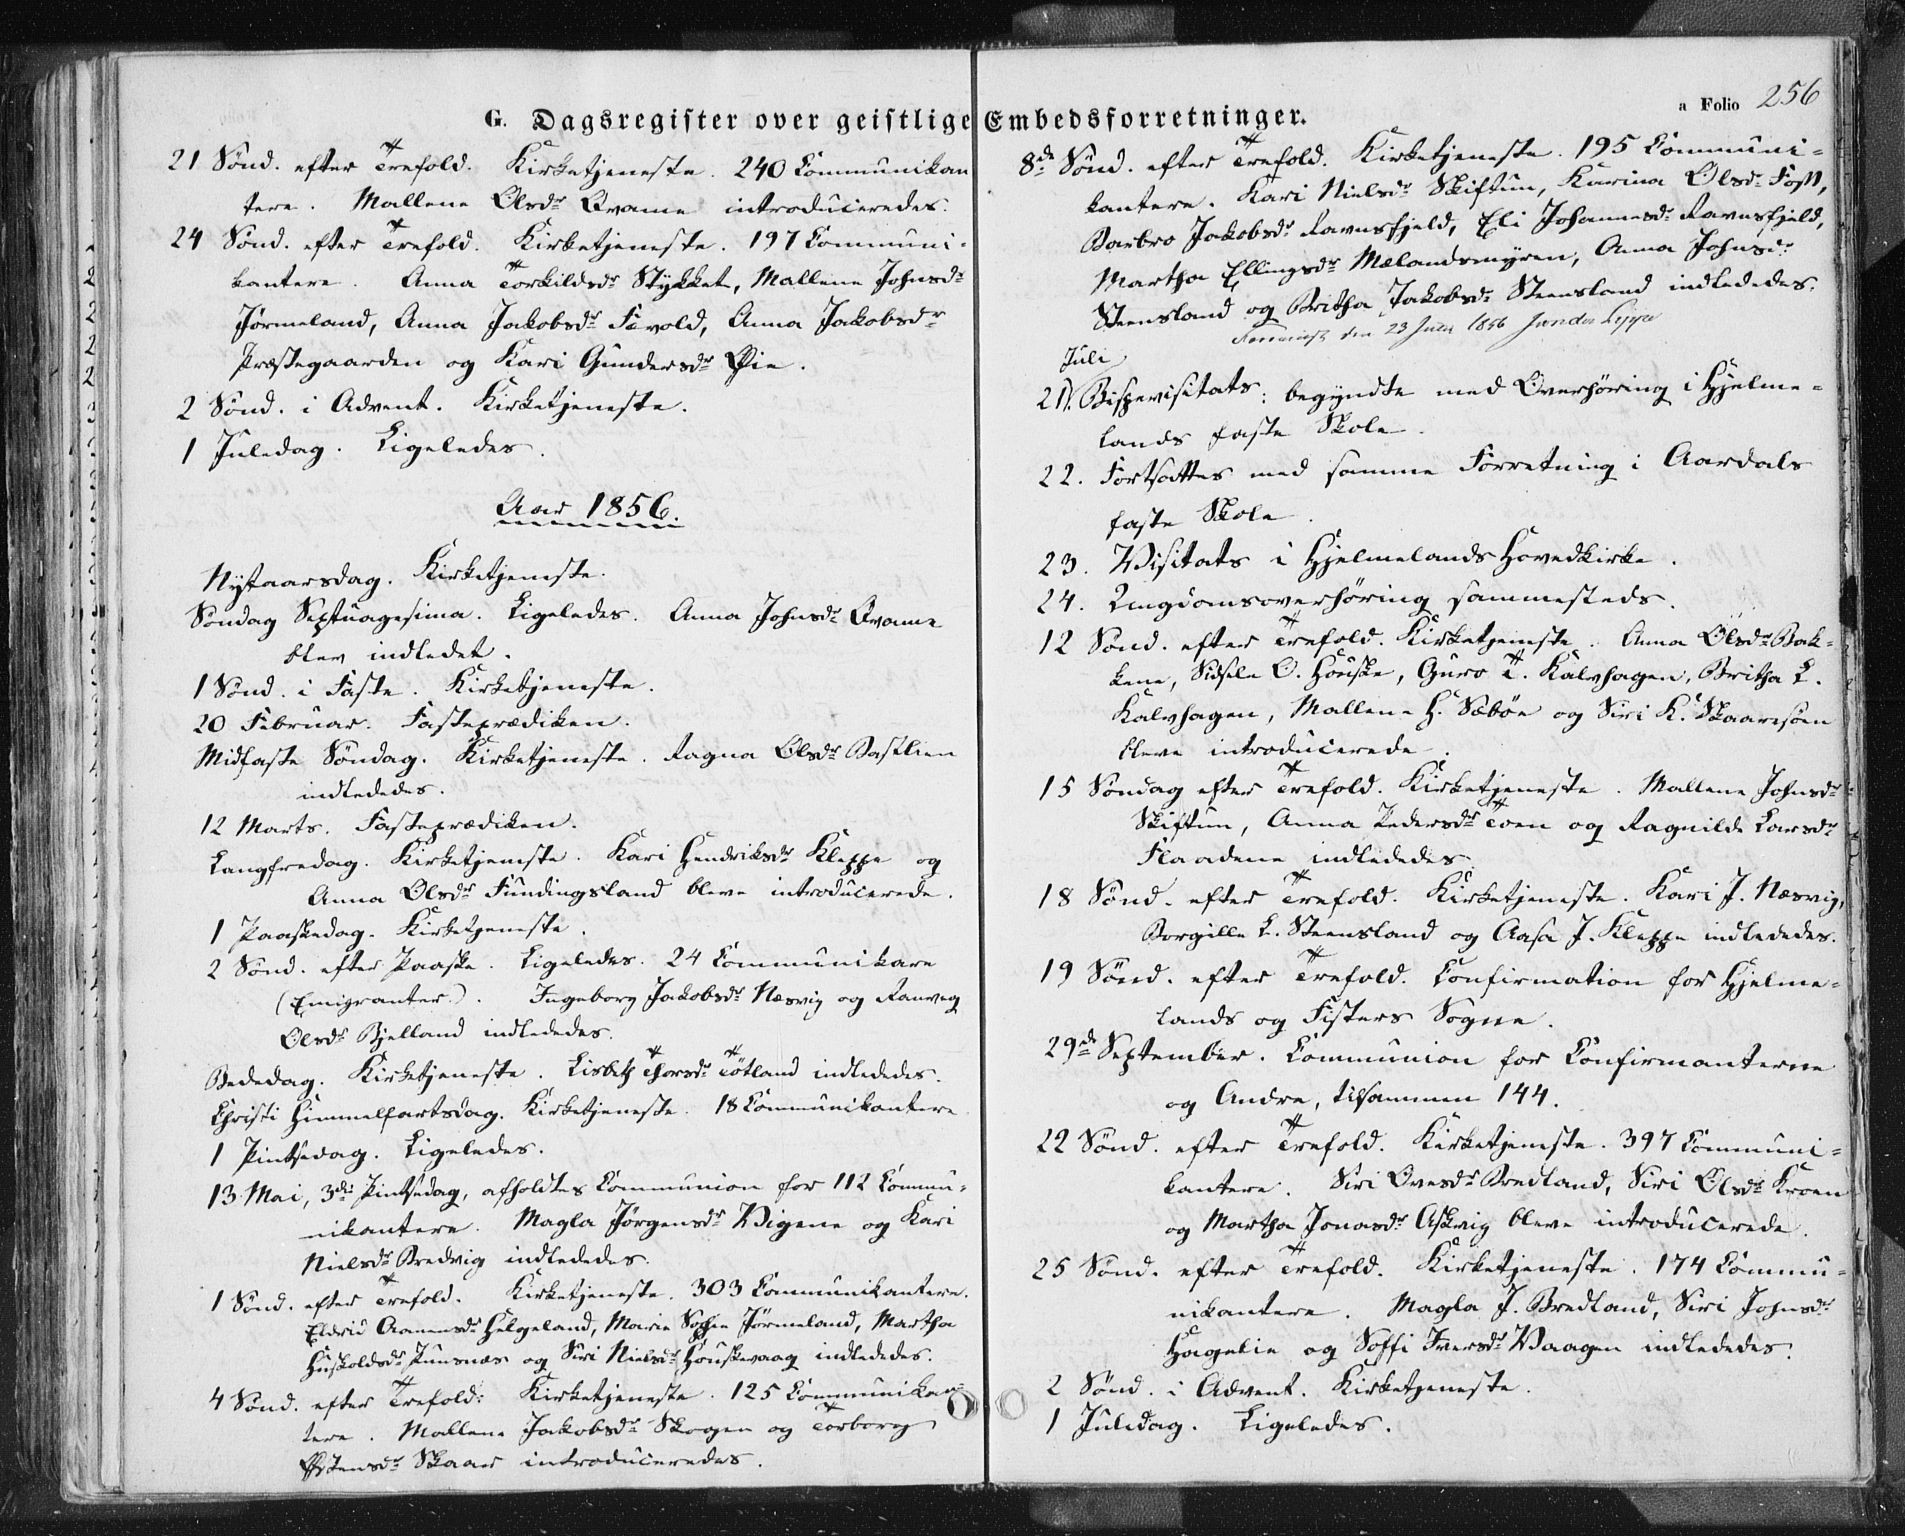 a Folio 256
G. Dagsregister over geistlige Embedsforretninger.
21 Sønd. efter Trefold. Kirketjeneste. 240 Communikan
tere. Mallene Olsdr Qvame introduceredes.
24 Sønd. efter Trefold. Kirketjeneste. 197 Communi-
kantere. Anna Torkildsdr Stykket, Mallene Johnsdr
Jørmeland, Anna Jakobsdr Fevold, Anna Jakobsdr
Præstegaarden og Kari Gundersdr Øie.
2 Sønd. i Advent. Kirketjeneste.
1 Juledag. Ligeledes.
Aar 1856.
Nytaarsdag. Kirketjeneste.
Søndag Septuagesima. Ligeledes. Anna Johnsdr Qvame
blev indledet.
1 Sønd. i Faste. Kirketjeneste.
20 Februar. Fasteprædiken.
Midfaste Søndag. Kirketjeneste. Ragna Olsdr Bastlien
indlededes.
12 Marts. Fasteprædiken.
Langfredag. Kirketjeneste. Kari Hendriksdr Kleppe og
Anna Olsdr Fundingsland bleve introducerede.
1 Paaskedag. Kirketjeneste.
2 Sønd. efter Paaske. Ligeledes. 24 Communikare
(Emigranter). Ingeborg Jakobsdr Næsvig og Ranveg
Olsdr Bjelland indlededes.
Bededag. Kirketjeneste. Lisbeth Thorsdr Tøtland indlededes.
Christi Himmelfartsdag. Kirketjeneste. 18 Communikantere
1 Pintsedag. Ligeledes.
13 Mai, 3die Pintsedag, afholdtes Communion for 112 Commu-
nikantere. Magla Jørgensdr Vigene og Kari
Nielsdr Bredvig indlededes.
1 Sønd. efter Trefold. Kirketjeneste. 303 Communikantere.
Eldrid Aanensdr Helgeland, Marie Sophie Jørmeland, Martha
Huskoldsdr Puntsnæs og Siri Nielsdr Houskevaag indlededes.
4 Sønd. efter Trefold: Kirketjeneste. 125 Communikan-
tere. Mallene Jakobsdr Skogen og Torborg
Østensdr Skaar introduceredes.
8de Sønd. efter Trefold. Kirketjeneste. 195 Communi-
kantere. Kari Nielsdr Skiftun, Karina Olsdr Foss,
Barbro Jakobsdr Ravnsfjeld, Eli Johannesdr Ravnsfjeld,
Martha Ellingsdr Mælandsmyren, Anna Johnsdr
Steensland og Britha Jakobsdr Steensland indlededes.
den 23 Juli 1856
Juli
21. Bispevisitats: begyndte med Overhøring i Hjelme-
lands faste Skole.
22. Fortsattes med samme Forretning i Aardals
faste Skole.
23. Visitats i Hjelmelands Hovedkirke.
24. Ungdomsoverhøring sammesteds.
12 Sønd. efter Trefold. Kirketjeneste. Anna Olsdr Bak-
kene, Sidsele O. Houske, Guro T. Kalvhagen, Britha L.
Kalvhagen, Mallene H. Sæbøe og Siri K. Skaaresøen
bleve introducerede.
15 Søndag efter Trefold. Kirketjeneste. Mallene Johnsdr
Skiftun, Anna Pedersdr Toen og Ragnilde Larsdr
Flaadene indlededes.
18 Sønd. efter Trefold. Kirketjeneste. Kari J. Næsvig,
Borgille L. Steensland og Aasa J. Kleppe indlededes.
19 Sønd. efter Trefold. Confirmation for Hjelme-
lands og Fisters Sogne.
29de September. Communion for Confirmanterne
og Andre, tilsammen 144.
22 Sønd. efter Trefold. Kirketjeneste. 397 Communi-
kantere. Siri Ovesdr Bredland, Siri Olsdr Kroen
og Martha Jonasdr Askvig bleve introducerede.
25 Sønd. efter Trefold. Kirketjeneste. 174 Commu-
nikantere. Magla J. Bredland, Siri Johnsdr
Hagelie og Soffi Iversdr Vaagen indlededes.
2 Sønd. i Advent. Kirketjeneste.
1 Juledag. Ligeledes.